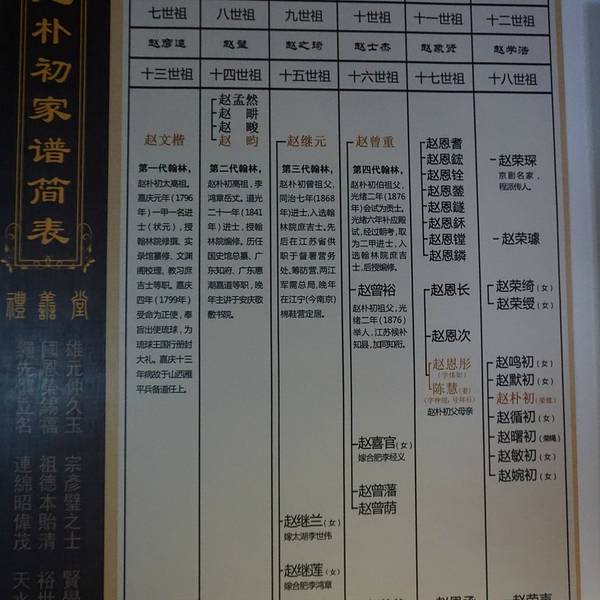 朴初家谱简表
禮善堂
雄元仲久玉 宗彦璧之士 賢學
國恩榮錫福 祖德本貽清 裕世
繩先冀立名 連綿昭偉茂 天水
七世祖 八世祖 九世祖 十世祖 十一世祖 十二世祖
赵彦逞 赵璧 赵之琦 赵士杰 赵象贤 赵学浩
十三世祖 十四世祖 十五世祖 十六世祖 十七世祖 十八世祖
赵文楷
第一代翰林，
赵朴初太高祖。
嘉庆元年(1796
年)一甲一名进
士(状元)，授
翰林院修撰、实
录馆纂修、文渊
阁校理、教习庶
吉士等职。嘉庆
四年(1799年)
受命为正使，奉
旨出使琉球，为
琉球王国行册封
大礼。嘉庆十三
年病故于山西雁
平兵备道任上。
赵孟然
赵畊
赵畯
赵畇
第二代翰林，
赵朴初高祖，李
鸿章岳丈。道光
二十一年(1841
年)进士，授翰
林院编修。历任
国史馆总纂、广
东知府、广东惠
潮嘉道等职，晚
年主讲于安庆敬
敷书院。
赵继元
第三代翰林，
赵朴初曾祖父，
同治七年(1868
年)进士，入选翰
林院庶吉士。先
后在江苏省供
职于督署营务
处、筹防营、两江
军需总局，晚年
在江宁(今南京)
棉鞋营定居。
赵继兰(女)
嫁太湖李世伟
赵继莲(女)
嫁合肥李鸿章
赵曾重
第四代翰林，
赵朴初伯祖父，
光绪二年(1876
年)会试为贡士。
光绪六年补应殿
试，经过朝考，取
为二甲进士，入
选翰林院庶吉
士，后授编修。
赵曾裕
赵朴初祖父，光
绪二年(1876)
举人，江苏候补
知县，加同知衔。
赵喜官(女)
嫁合肥李经义
赵曾藩
赵曾荫
赵恩耆
赵恩鋐
赵恩铨
赵恩鎣
赵恩鐩
赵恩钚
赵恩镗
赵恩鏻
赵恩长
赵恩次
赵恩彤
陈慧(妻)
赵朴初父母亲
赵荣琛
京剧名家，
程派传人。
赵荣璩
赵荣绮(女)
赵荣绶(女)
赵鸣初(女)
赵默初(女)
赵朴初(荣绪)
赵循初(女)
赵曙初(荣绳)
赵敏初(女)
赵婉初(女)